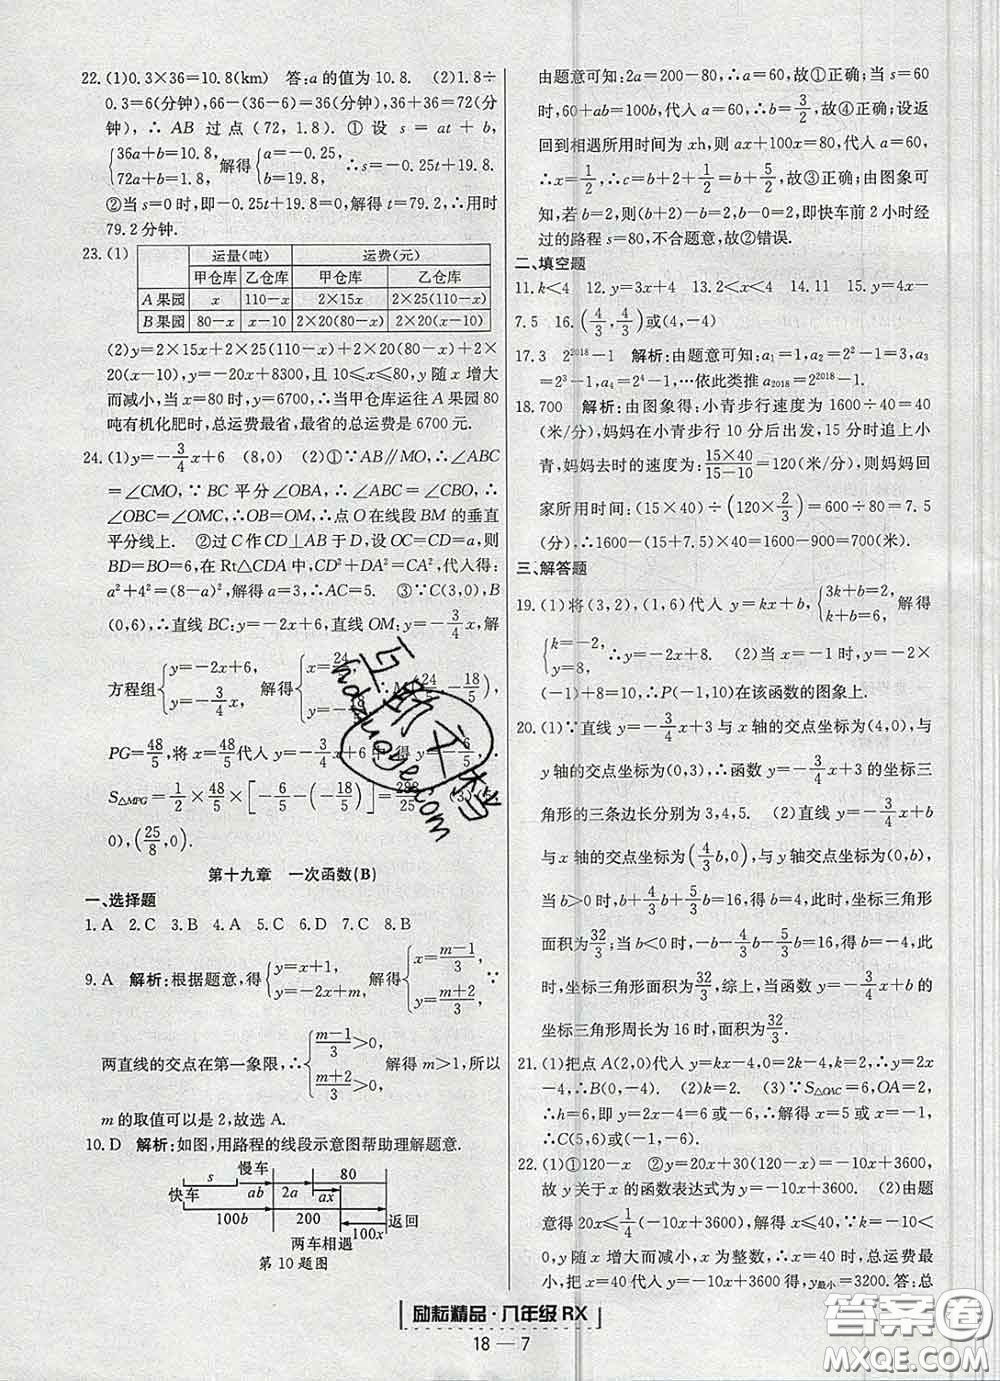 22. (1)0.3×36=10.8(km)　答:a 的值为 10.8.　(2)1.8÷
0.3=6(分钟),66-(36-6)=36(分钟),36+36=72(分
钟),∴AB 过点(72,1.8).　①设 s=at+b,
{36a+b=10.8, 72a+b=1.8, 解得{a=-0.25, b=19.8. ∴s=-0.25t+19.8.
②当 s=0 时,即-0.25t+19.8=0,解得 t=79.2,∴用时
79.2 分钟.
23. (1)
运量(吨)　运费(元)
甲仓库　乙仓库　甲仓库　乙仓库
A 果园　x　110-x　2×15x　2×25(110-x)
B 果园　80-x　x-10　2×20(80-x)　2×20(x-10)
(2)y=2×15x+2×25(110-x)+2×20(80-x)+2×
20(x-10),y=-20x+8300,且 10≤x≤80,y 随 x 增大
而减小,当 x=80 时,y=6700,∴当甲仓库运往 A 果园 80
吨有机化肥时,总运费最省,最省的总运费是 6700 元.
24. (1)y=-3/4x+6　(8,0)　(2)①∵AB∥MO,∴∠ABC
=∠CMO,∵BC 平分∠OBA,∴∠ABC=∠CBO,∴
∠OBC=∠OMC,∴OB=OM,∴点 O 在线段 BM 的垂直
平分线上.　②过 C 作 CD⊥AB 于 D,设 OC=CD=a,则
BD=BO=6,在 Rt△CDA 中,CD²+DA²=CA²,代入得:
a²+4²=(8-a)²,解得 a=3,∴AC=5.　③∵C(3,0),B
(0,6),∴直线 BC:y=-2x+6,直线 OM:y=-3/4x,解
方程组{y=-2x+6, y=-3/4x, 解得{x=24/ y=-18/
PG=48/5,将 x=48/5代入 y=-3/4x+6 中,得 y=-6/5,∴
S△MPG=1/2×48/5×[-6/5-(-18/5)]=288/25　(3)(5,
0),(25/8,0).
第十九章　一次函数(B)
一、选择题
1. A　2. C　3. B　4. C　5. C　6. D　7. C　8. B
9. A　解析:根据题意,得{y=x+1, y=-2x+m, 解得{x=(m-1)/3, y=(m+2)/3. ∵
两直线的交点在第一象限,∴{(m-1)/3>0, (m+2)/3>0, 解得 m>1,所以
m 的取值可以是 2,故选 A.
10. D　解析:如图,用路程的线段示意图帮助理解题意.
s　慢车　80
快车　ab　2a　ax
100b　200　100x　返回
两车相遇
第 10 题图
由题意可知:2a=200-80,∴a=60,故①正确;当 s=60
时,60+ab=100b,代入 a=60,∴b=3/2,故④正确;设返
回到相遇所用时间为 xh,则 ax+100x=80,代入 a=60,
∴x=1/2,∴c=b+2+1/2=b+5/2,故③正确;由图象可
知,若 b=2,则(b+2)-b=2,b-0=2,即快车前 2 小时经
过的路程 s=80,不合题意,故②错误.
二、填空题
11. k<4　12. y=3x+4　13. 2<x<4　14. 11　15. y=4x-
7.5　16. (4/3,4/3)或(4,-4)
17. 3　2²⁰¹⁸-1　解析:由题意可知:a₁=1,a₂=2²-1=3,a₃
=2³-1,a₄=2⁴-1,…依此类推 a₂₀₁₈=2²⁰¹⁸-1.
18. 700　解析:由图象得:小青步行速度为 1600÷40=40
(米/分),妈妈在小青步行 10 分后出发,15 分时追上小
青,妈妈去时的速度为:(15×40)/(15-10)=120(米/分),则妈妈回
家所用时间:(15×40)÷(120×2/3)=600÷80=7.5
(分),∴1600-(15+7.5)×40=1600-900=700(米).
三、解答题
19. (1)将(3,2),(1,6)代入 y=kx+b,{3k+b=2, k+b=6. 解得
{k=-2, y=8, ∴y=-2x+8.　(2)当 x=-1 时,y=-2×
(-1)+8=10,∴P(-1,10)在该函数的图象上.
20. (1)∵直线 y=-3/4x+3 与 x 轴的交点坐标为(4,0),与
y 轴的交点坐标为(0,3),∴函数 y=-3/4x+3 的坐标三
角形的三条边长分别为 3,4,5.　(2)直线 y=-3/4x+b
与 x 轴的交点坐标为(4/3b,0),与 y 轴交点坐标为(0,b),
当 b>0 时,b+4/3b+5/3b=16,得 b=4,此时,坐标三角形
面积为32/3;当 b<0 时,-b-4/3b-5/3b=16,得 b=-4,此
时,坐标三角形面积为32/3,综上,当函数 y=-3/4x+b 的
坐标三角形周长为 16 时,面积为32/3.
21. (1)把点 A(2,0)代入 y=kx-4,0=2k-4,∴y=2x
-4,∴B(0,-4).　(2)k=2.　(3)∵S△OAC=6,OA=2,
∴C(5,6)或(-1,-6).
22. (1)①120-x　②y=20x+30(120-x)=-10x+3600,
故 y 关于 x 的函数表达式为 y=-10x+3600.　(2)由题
意得 20x≤1/4(-10x+3600),解得 x≤40.∵k=-10<
0,y 随 x 增大而减小,x 为整数,∴x=40 时,总运费最
小,把 x=40 代入 y=-10x+3600 得,y最小=3200.答:总
励耘精品·八年级 RX
18 — 7
互助文档
hdzuoye.com
答案圈
MXQE.COM